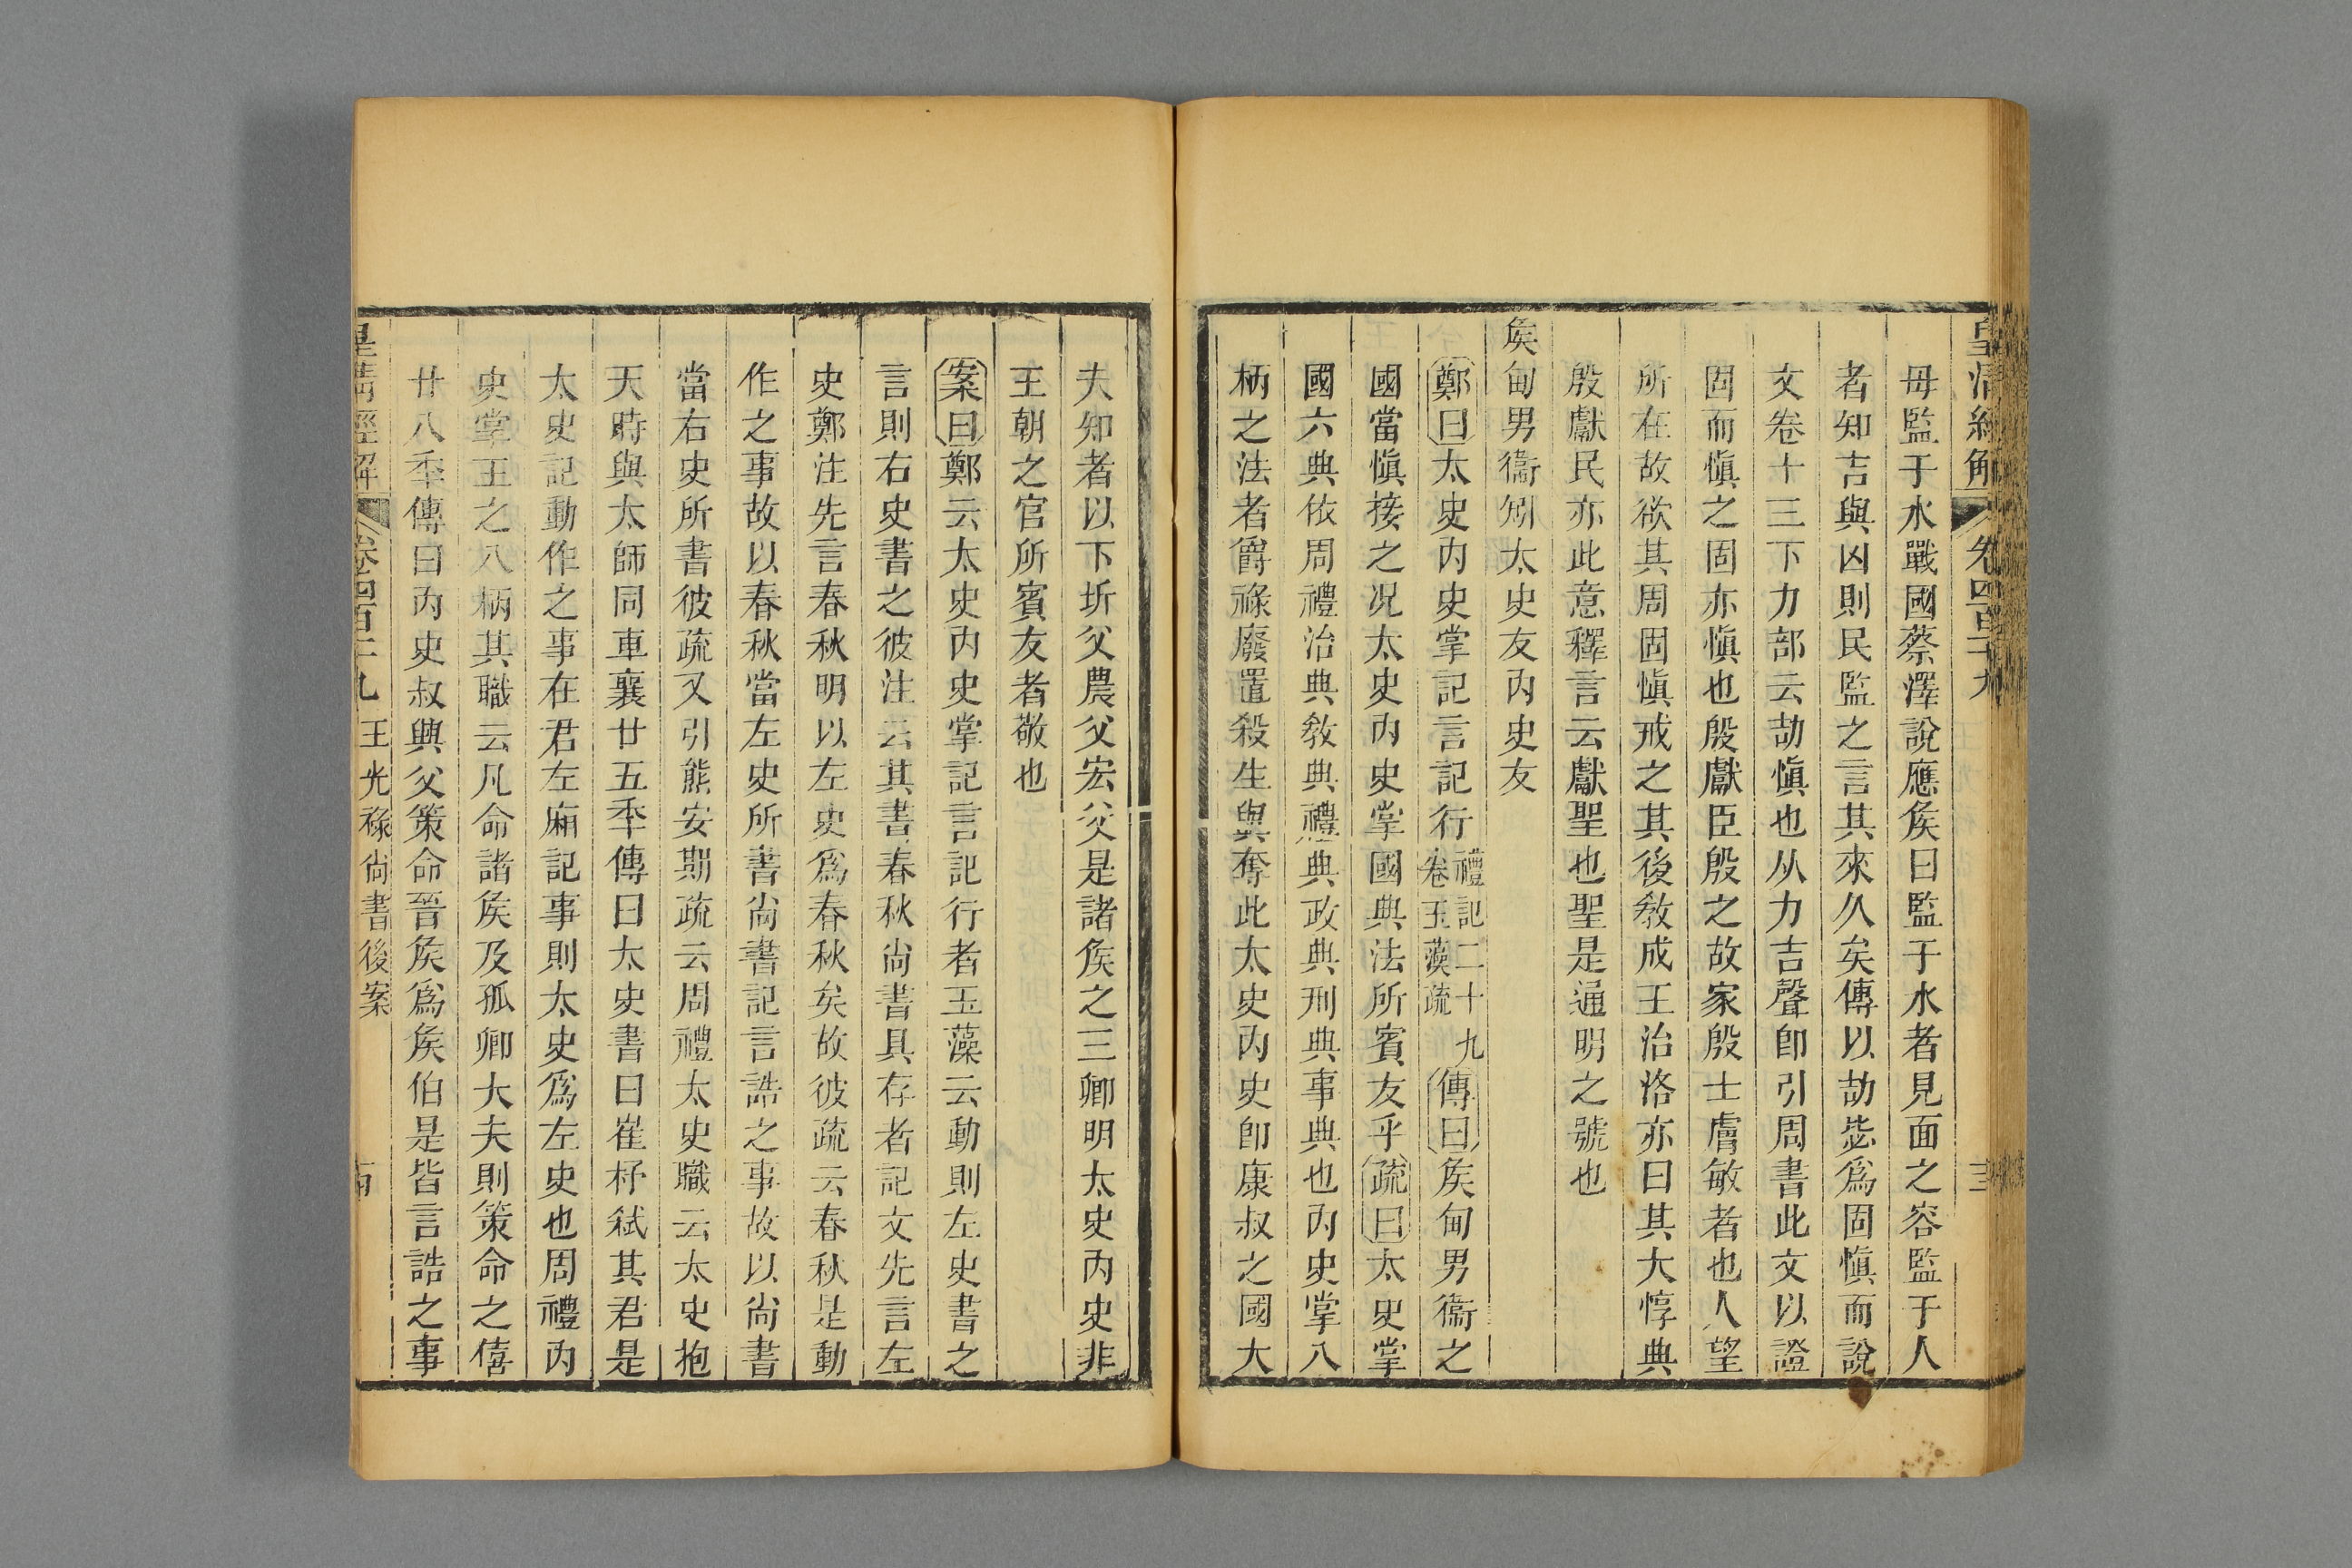 皇清經解 卷四百十九 三
毋監于水戰國蔡澤說應矦曰監于水者見面之容監于人
者知吉與凶則民監之言其來久矣傳以劼毖爲固愼而說
文卷十三下力部云劼愼也从力吉聲卽引周書此文以證
固而愼之固亦愼也殷獻臣殷之故家殷士膚敏者也人望
所在故欲其周固愼戒之其後敎成王治洛亦曰其大惇典
殷獻民亦此意釋言云獻聖也聖是通明之號也
矦甸男衞矧太史友內史友
鄭曰太史內史掌記言記行禮記二十九卷玉藻疏傳曰矦甸男衞之
國當愼接之况太史內史掌國典法所賓友乎疏曰太史掌
國六典依周禮治典敎典禮典政典刑典事典也內史掌八
柄之法者爵祿廢置殺生與奪此太史內史卽康叔之國大
夫知者以下圻父農父宏父是諸矦之三卿明太史內史非
王朝之官所賓友者敬也
案曰鄭云太史內史掌記言記行者玉藻云動則左史書之
言則右史書之彼注云其書春秋尙書具存者記文先言左
史鄭注先言春秋明以左史爲春秋矣故彼疏云春秋是動
作之事故以春秋當左史所書尙書記言誥之事故以尙書
當右史所書彼疏又引熊安期疏云周禮太史職云太史抱
天時與太師同車襄廿五年傳曰太史書曰崔杼弑其君是
太史記動作之事在君左廂記事則太史爲左史也周禮內
史掌王之八柄其職云凡命諸矦及孤卿大夫則策命之僖
廿八年傳曰內史叔興父策命晉矦爲矦伯是皆言誥之事
皇清經解 卷四百十九 王光祿尙書後案